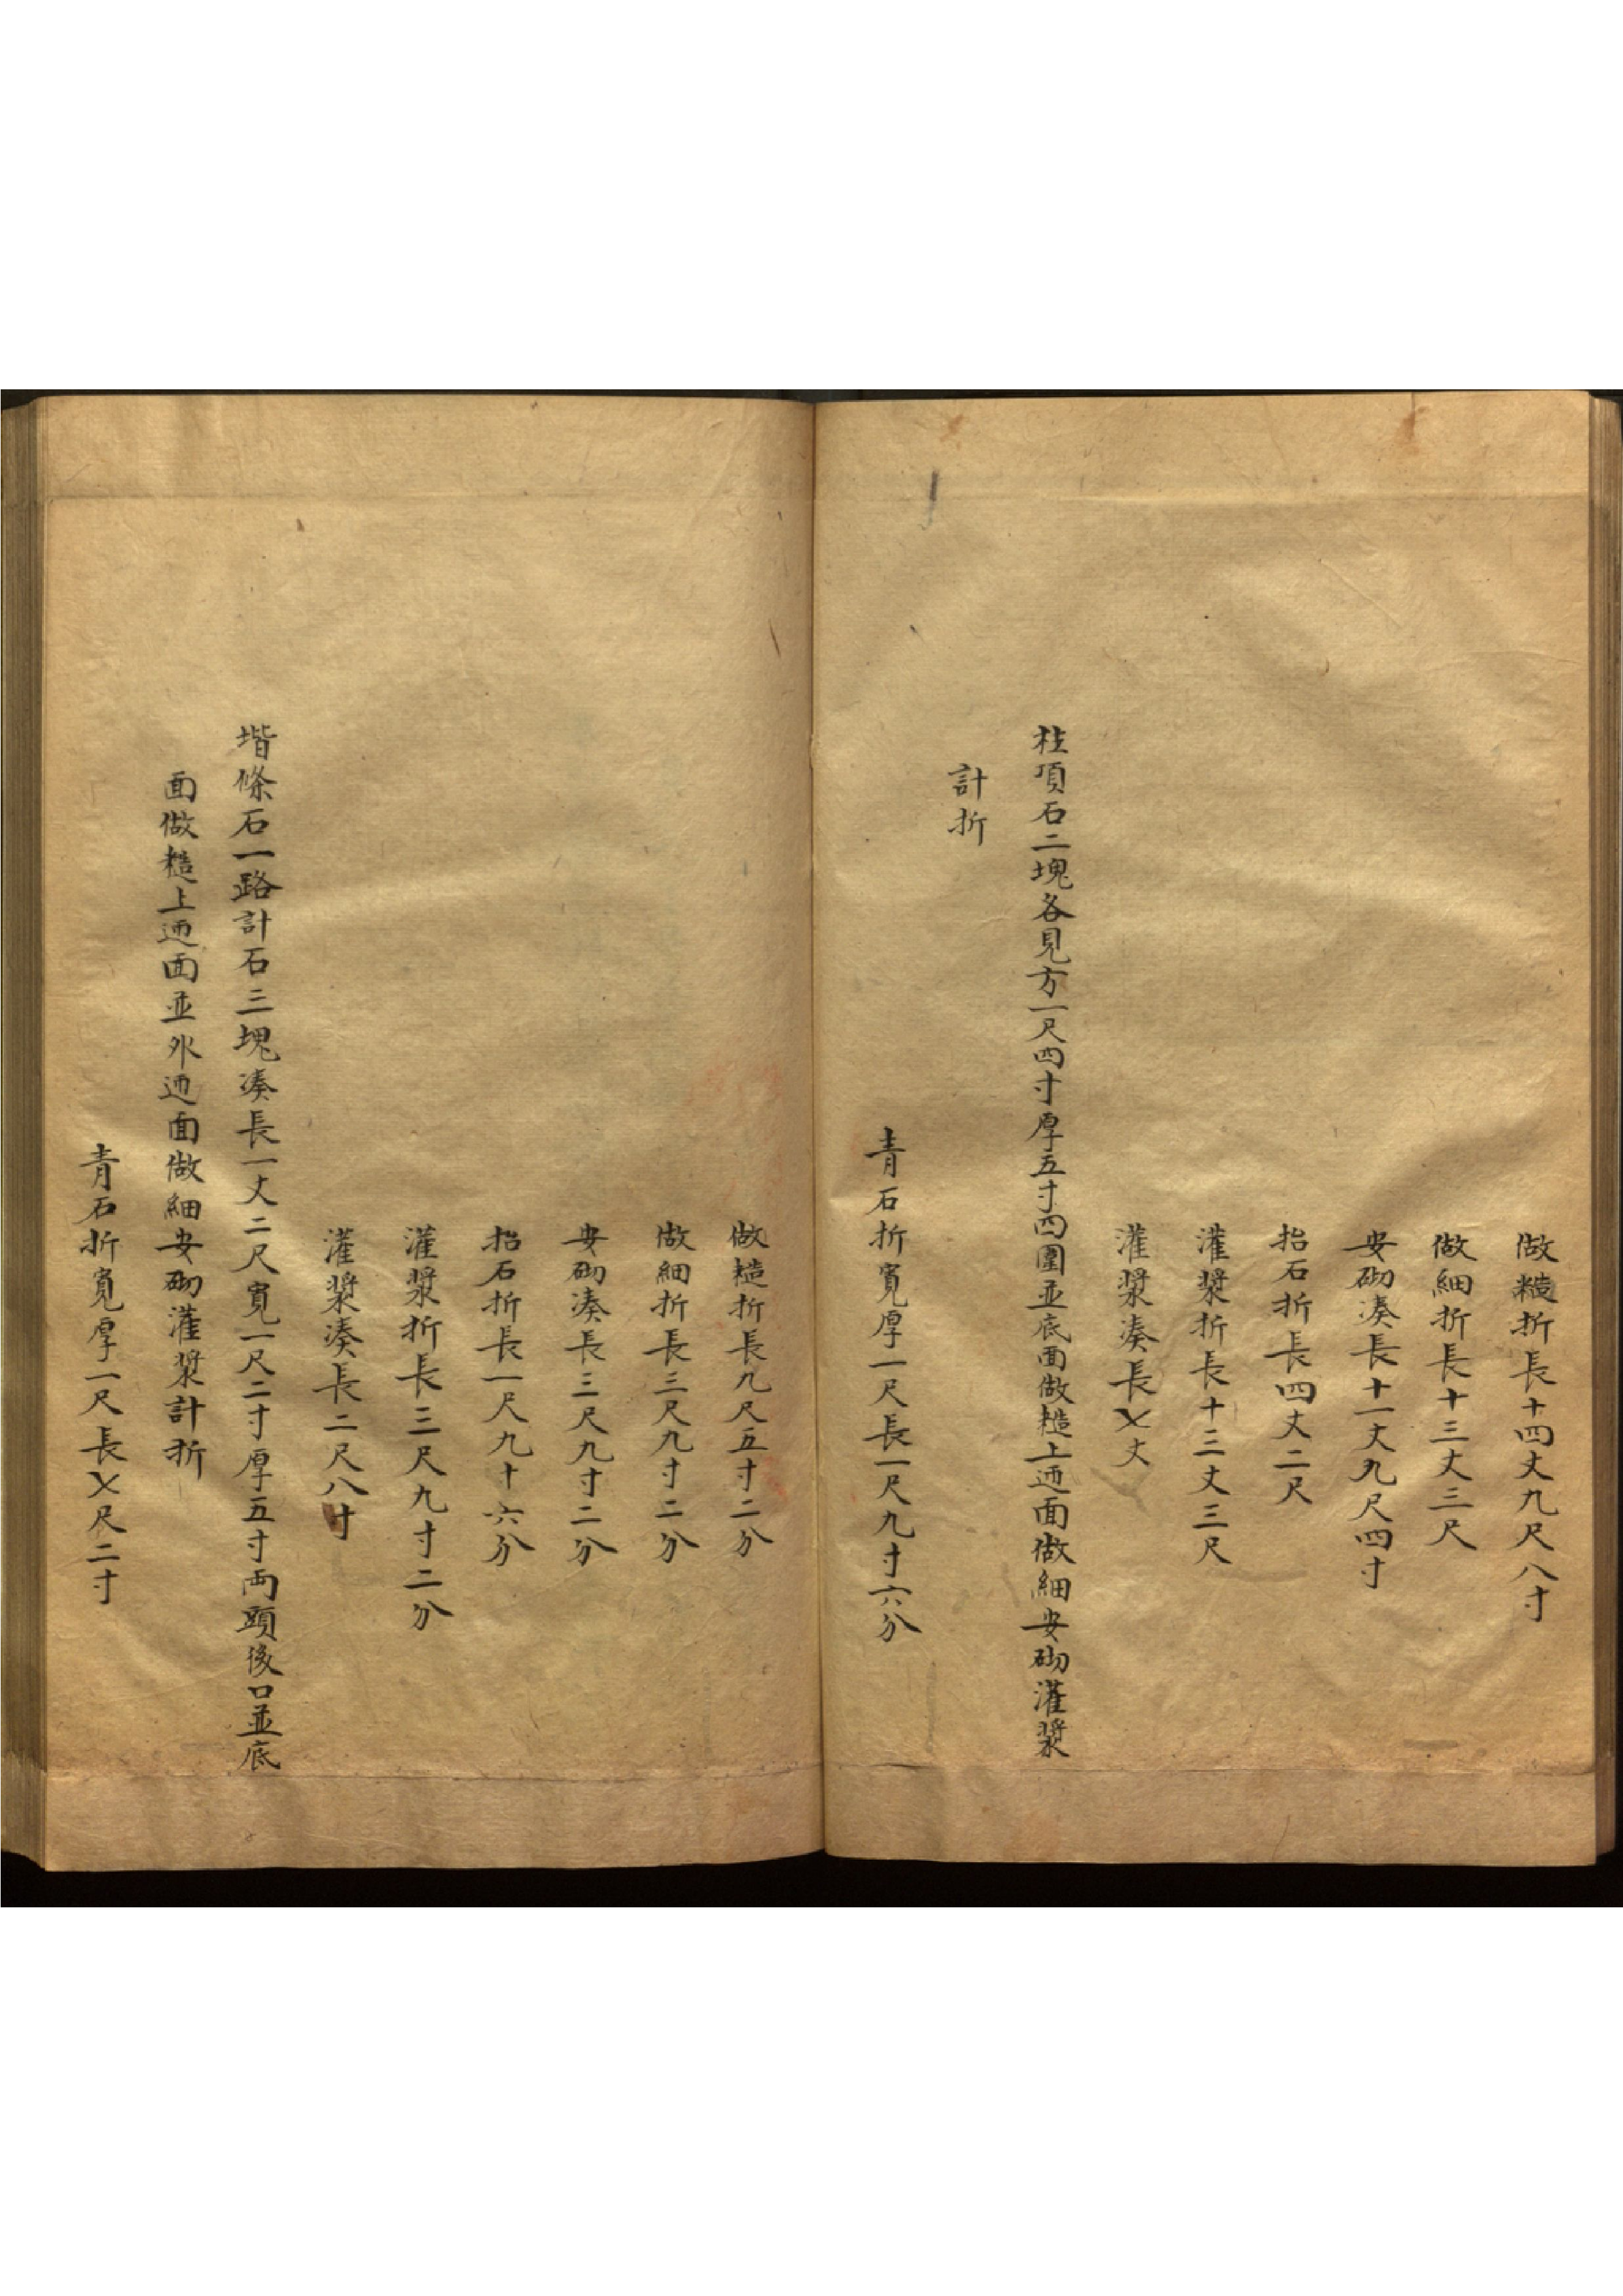 做糙折長十四丈九尺八寸
做細折長十三丈三尺
安砌湊長十一丈九尺四寸
抬石折長四丈二尺
灌漿折長十三丈三尺
灌漿湊長〤丈
柱頂石二塊各見方一尺四寸厚五寸四圍並底面做糙上迊面做細安砌灌漿
計折
青石折寬厚一尺長一尺九寸六分
做糙折長九尺五寸二分
做細折長三尺九寸二分
安砌湊長三尺九寸二分
抬石折長一尺九十六分
灌漿折長三尺九寸二分
灌漿湊長二尺八寸
堦條石一路計石三塊湊長一丈二尺寬一尺二寸厚五寸両頭後口並底
面做糙上迊面並外迊面做細安砌灌漿計折
青石折寬厚一尺長〤尺二寸